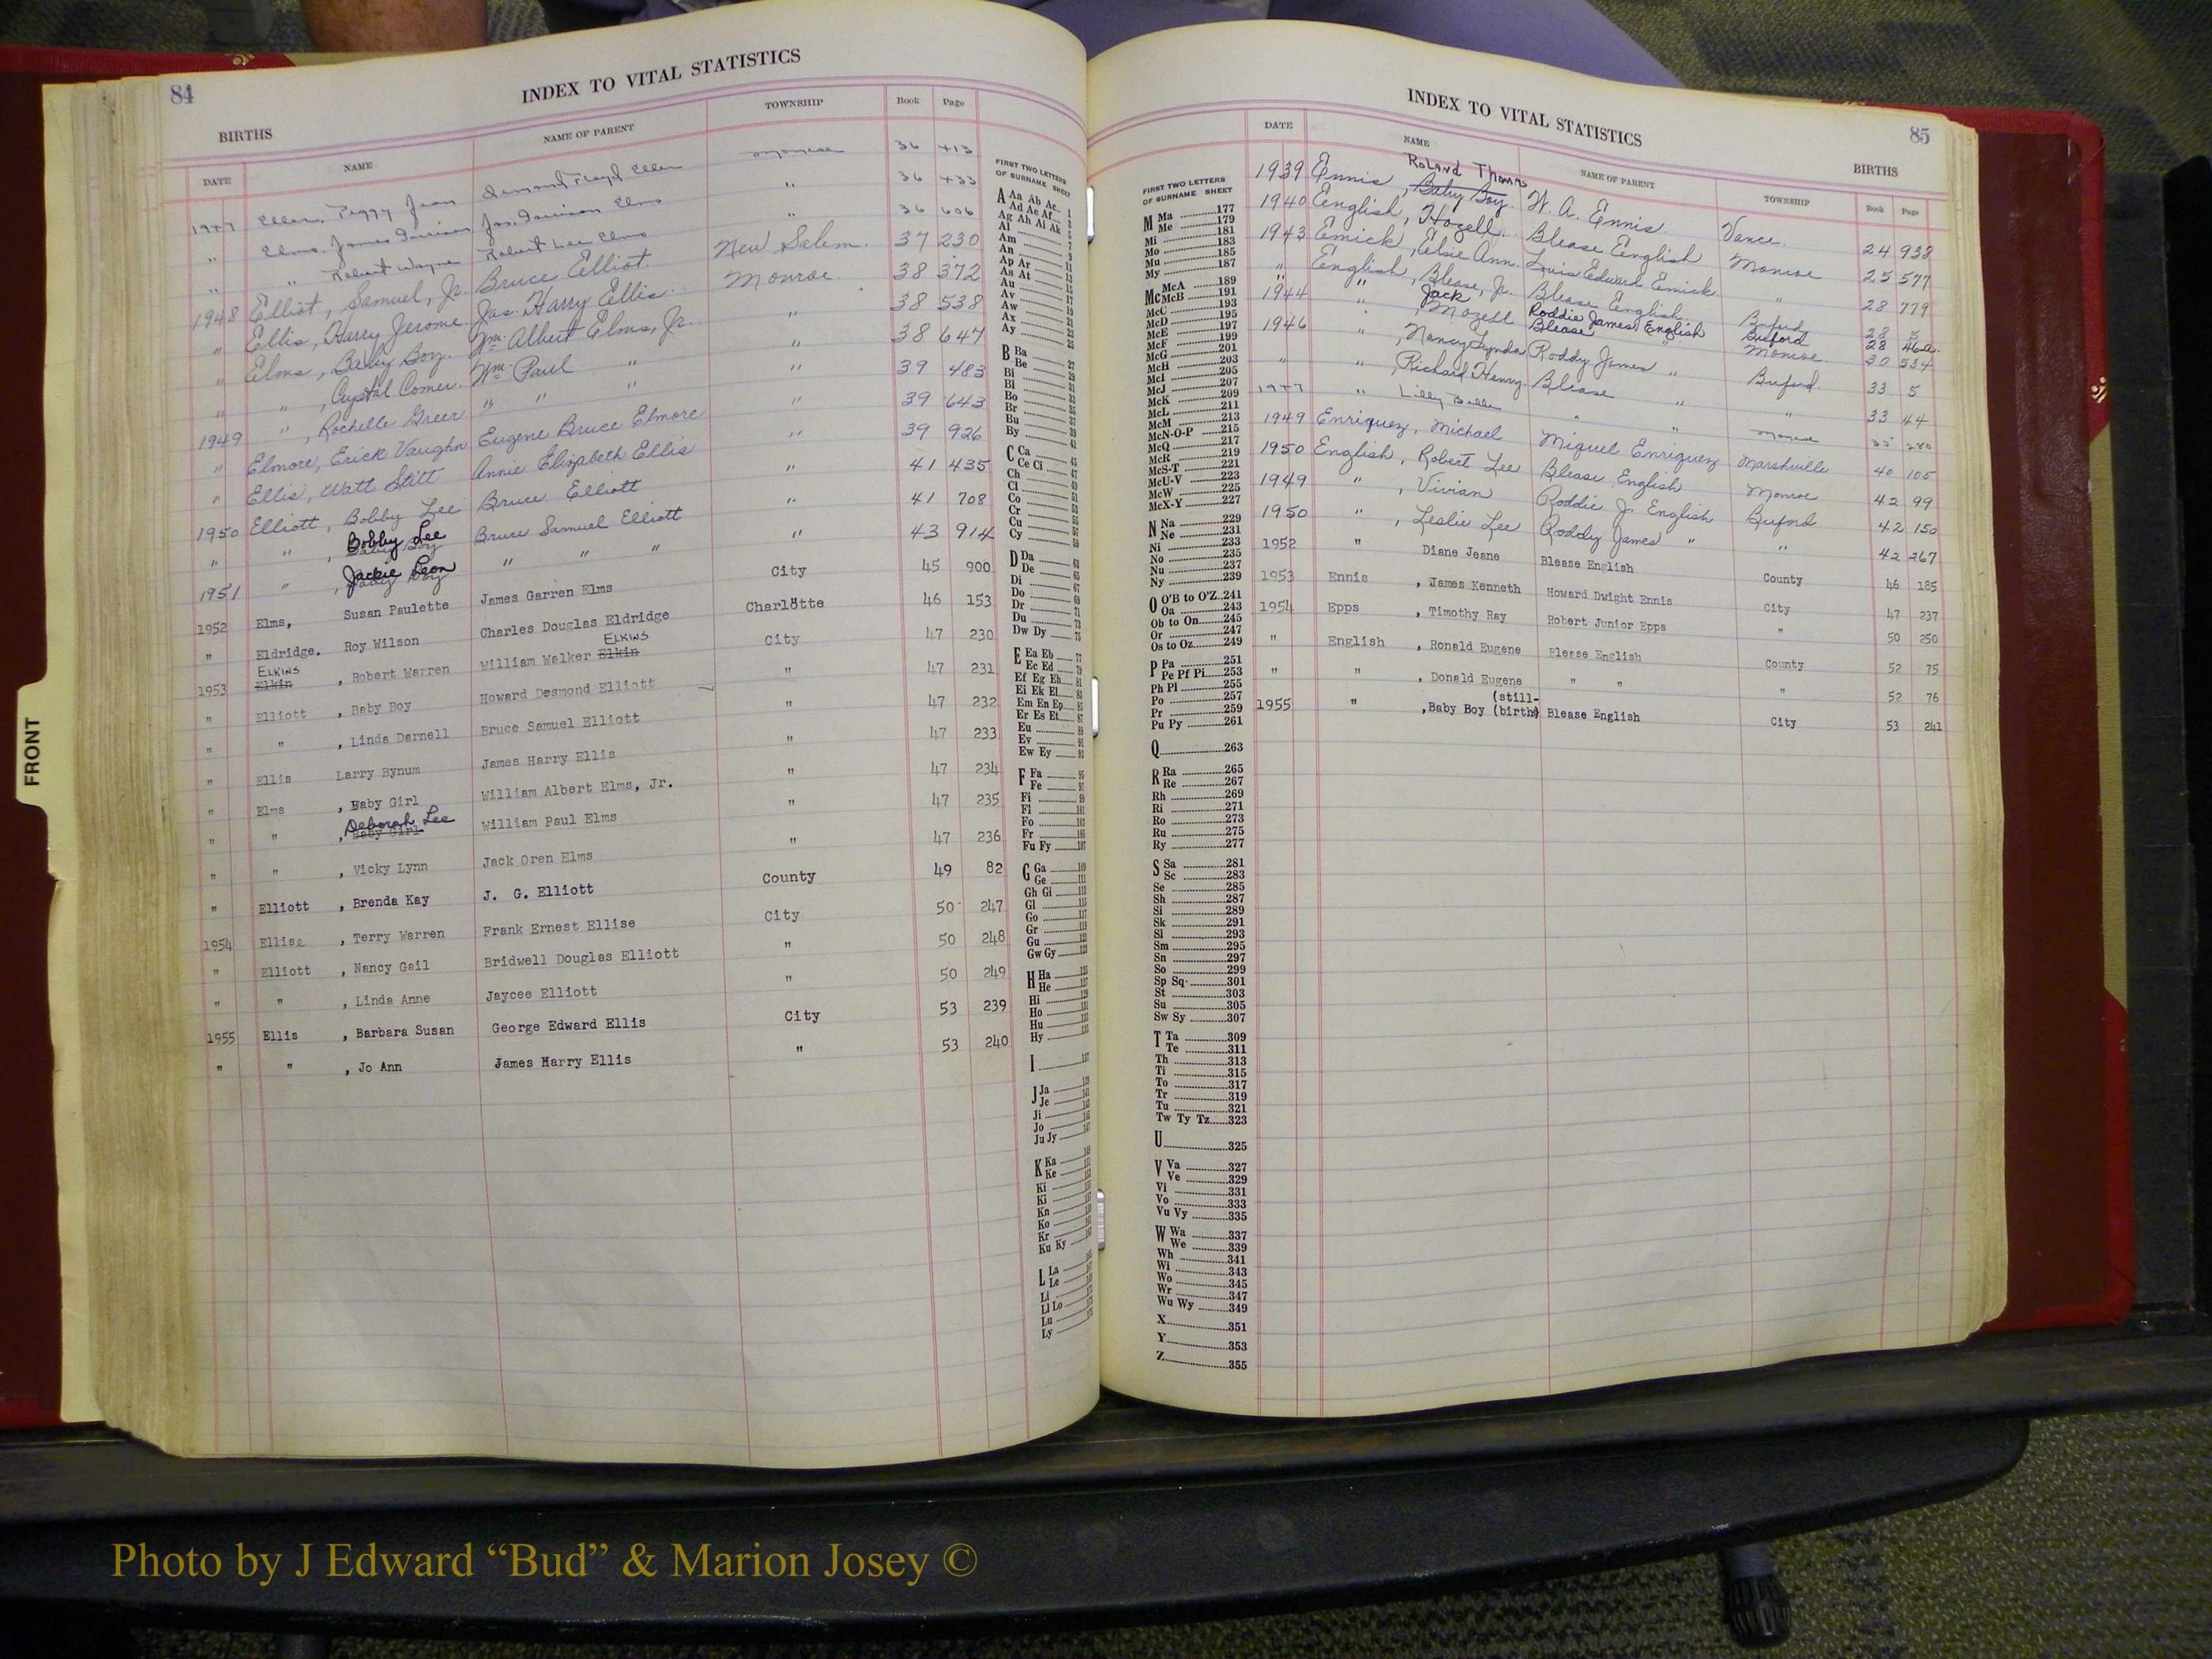 84
INDEX TO VITAL STATISTICS
BIRTHS
DATE NAME NAME OF PARENT TOWNSHIP Book Page
1947 Peggy Jean Monroe 36 413
" Elms, James " 36 433
" " Robert Wayne Robert Lee Elms " 36 606
1948 Elliot, Samuel, Jr. Bruce Elliot. New Salem. 37 230
" Ellis, Harry Jerome Jas. Harry Ellis. Monroe. 38 372
" Elms, Baby Boy. Wm. Albert Elms, Jr. " 38 538
" " , Crystal Comer. Wm. Paul " " 38 647
1949 " , Rochelle Greer " " " " 39 483
" Elmore, Erick Vaughn Eugene Bruce Elmore " 39 643
" Ellis, Watt Stitt Annie Elizabeth Ellis " 39 926
1950 Elliott, Bobby Lee Bruce Elliott " 41 435
" " , Bobby Lee Baby Boy Bruce Samuel Elliott " 41 708
1951 " , Jackie Leon Baby Boy " " " " 43 914
1952 Elms, Susan Paulette James Garren Elms City 45 900
" Eldridge. Roy Wilson Charles Douglas Eldridge Charlotte 46 153
1953 ELKINS Elkin , Robert Warren William Walker Elkin ELKINS City 47 230
" Elliott , Baby Boy Howard Desmond Elliott " 47 231
" " , Linda Darnell Bruce Samuel Elliott " 47 232
" Ellis Larry Bynum James Harry Ellis " 47 233
" Elms , Baby Girl William Albert Elms, Jr. " 47 234
" " , Deborah Lee Baby Girl William Paul Elms " 47 235
" " , Vicky Lynn Jack Oren Elms " 47 236
" Elliott , Brenda Kay J. G. Elliott County 49 82
1954 Ellise , Terry Warren Frank Ernest Ellise City 50 247
" Elliott , Nancy Gail Bridwell Douglas Elliott " 50 248
" " , Linda Anne Jaycee Elliott " 50 249
1955 Ellis , Barbara Susan George Edward Ellis City 53 239
" " , Jo Ann James Harry Ellis " 53 240
FIRST TWO LETTERS
OF SURNAME SHEET
A Aa Ab Ac 1
Ad Ae Af 3
Ag Ah Ai Ak 5
Al 7
Am 9
An 11
Ap Ar 13
As At 15
Au 17
Av 19
Aw 21
Ax 23
Ay 25
B Ba 27
Be 29
Bi 31
Bl 33
Bo 35
Br 37
Bu 39
By 41
C Ca 45
Ce Ci 47
Ch 49
Cl 51
Co 53
Cr 55
Cu 57
Cy 59
D Da 63
De 65
Di 67
Do 69
Dr 71
Du 73
Dw Dy 75
E Ea Eb 77
Ec Ed 79
Ef Eg Eh 81
Ei Ek El 83
Em En Ep 85
Er Es Et 87
Eu 89
Ev 91
Ew Ey 93
F Fa 95
Fe 97
Fi 99
Fl 101
Fo 103
Fr 105
Fu Fy 107
G Ga 109
Ge 111
Gh Gi 113
Gl 115
Go 117
Gr 119
Gu 121
Gw Gy 123
H Ha 125
He 127
Hi 129
Ho 131
Hu 133
Hy 135
I 137
J Ja
Je
Ji
Jo
Ju Jy
K Ka
Ke
Ki
Kl
Kn
Ko
Kr
Ku Ky
L La
Le
Li
Ll Lo
Lu
Ly
INDEX TO VITAL STATISTICS
85
BIRTHS
FIRST TWO LETTERS
OF SURNAME SHEET
M Ma 177
Me 179
Mi 181
Mo 183
Mu 185
My 187
Mc McA 189
McB 191
McC 193
McD 195
McE 197
McF 199
McG 201
McH 203
McI 205
McJ 207
McK 209
McL 211
McM 213
McN-O-P 215
McQ 217
McR 219
McS-T 221
McU-V 223
McW 225
McX-Y 227
N Na 229
Ne 231
Ni 233
No 235
Nu 237
Ny 239
O O'B to O'Z 241
Oa 243
Ob to On 245
Or 247
Os to Oz 249
P Pa 251
Pe Pf Pi 253
Ph Pl 255
Po 257
Pr 259
Pu Py 261
Q 263
R Ra 265
Re 267
Rh 269
Ri 271
Ro 273
Ru 275
Ry 277
S Sa 281
Sc 283
Se 285
Sh 287
Si 289
Sk 291
Sl 293
Sm 295
Sn 297
So 299
Sp Sq 301
St 303
Su 305
Sw Sy 307
T Ta 309
Te 311
Th 313
Ti 315
To 317
Tr 319
Tu 321
Tw Ty Tz 323
U 325
V Va 327
Ve 329
Vi 331
Vo 333
Vu Vy 335
W Wa 337
We 339
Wh 341
Wi 343
Wo 345
Wr 347
Wu Wy 349
X 351
Y 353
Z 355
DATE NAME NAME OF PARENT TOWNSHIP Book Page
1939 Ennis, Roland Thomas Baby Boy. W. A. Ennis. Vance. 24 938
1940 English, Hozell. Blease English Monroe 25 577
1943 Emick, Elsie Ann. Louis Edward Emick " 28 779
" English, Blease, Jr. Blease English. Buford 28 5
1944 " Jack Roddie James English Buford 28 46a.
" , Mozell Blease " Monroe. 30 534
1946 " , Nancy Lynda Roddy James " Buford 33 5
" " , Richard Henry. Blease " " 33 44
1947 " Lilly Belle " " Monroe 35 280
1949 Enriquez, Michael Miguel Enriquez Marshville 40 105
1950 English, Robert Lee Blease English Monroe 42 99
1949 " , Vivian Roddie J. English Buford 42 150
1950 " , Leslie Lee Roddy James " " 42 267
1952 " Diane Jeane Blease English County 46 185
1953 Ennis , James Kenneth Howard Dwight Ennis City 47 237
1954 Epps , Timothy Ray Robert Junior Epps " 50 250
" English , Ronald Eugene Blease English County 52 75
" " , Donald Eugene " " " 52 76
1955 " , Baby Boy (still-birth) Blease English City 53 241
FRONT
Photo by J Edward “Bud” & Marion Josey ©